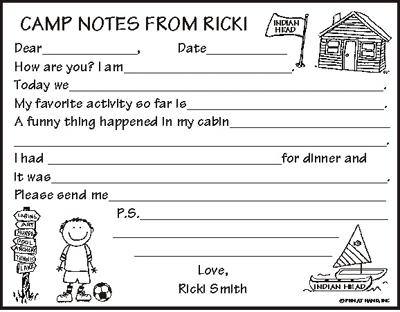 CAMP NOTES FROM RICKI
INDIAN HEAD
Dear__________, Date__________
How are you? I am______________________.
Today we______________________.
My favorite activity so far is______________________.
A funny thing happened in my cabin______________________
______________________.
I had ______________________for dinner and
it was______________________.
Please send me______________________.
P.S.______________________
ART
POOL
ARCHERY
TENNIS
LAKE
INDIAN HEAD
Love,
Ricki Smith